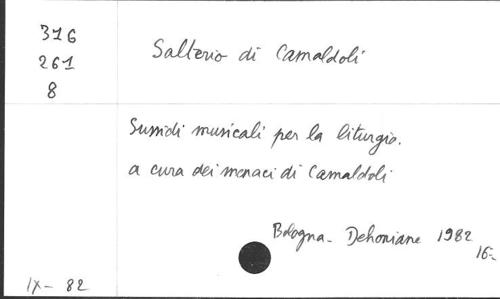 316
261
8
Salterio di Camaldoli
Sussidi musicali per la liturgia.
a cura dei monaci di Camaldoli
Bologna - Dehoniane 1982
16-
IX - 82